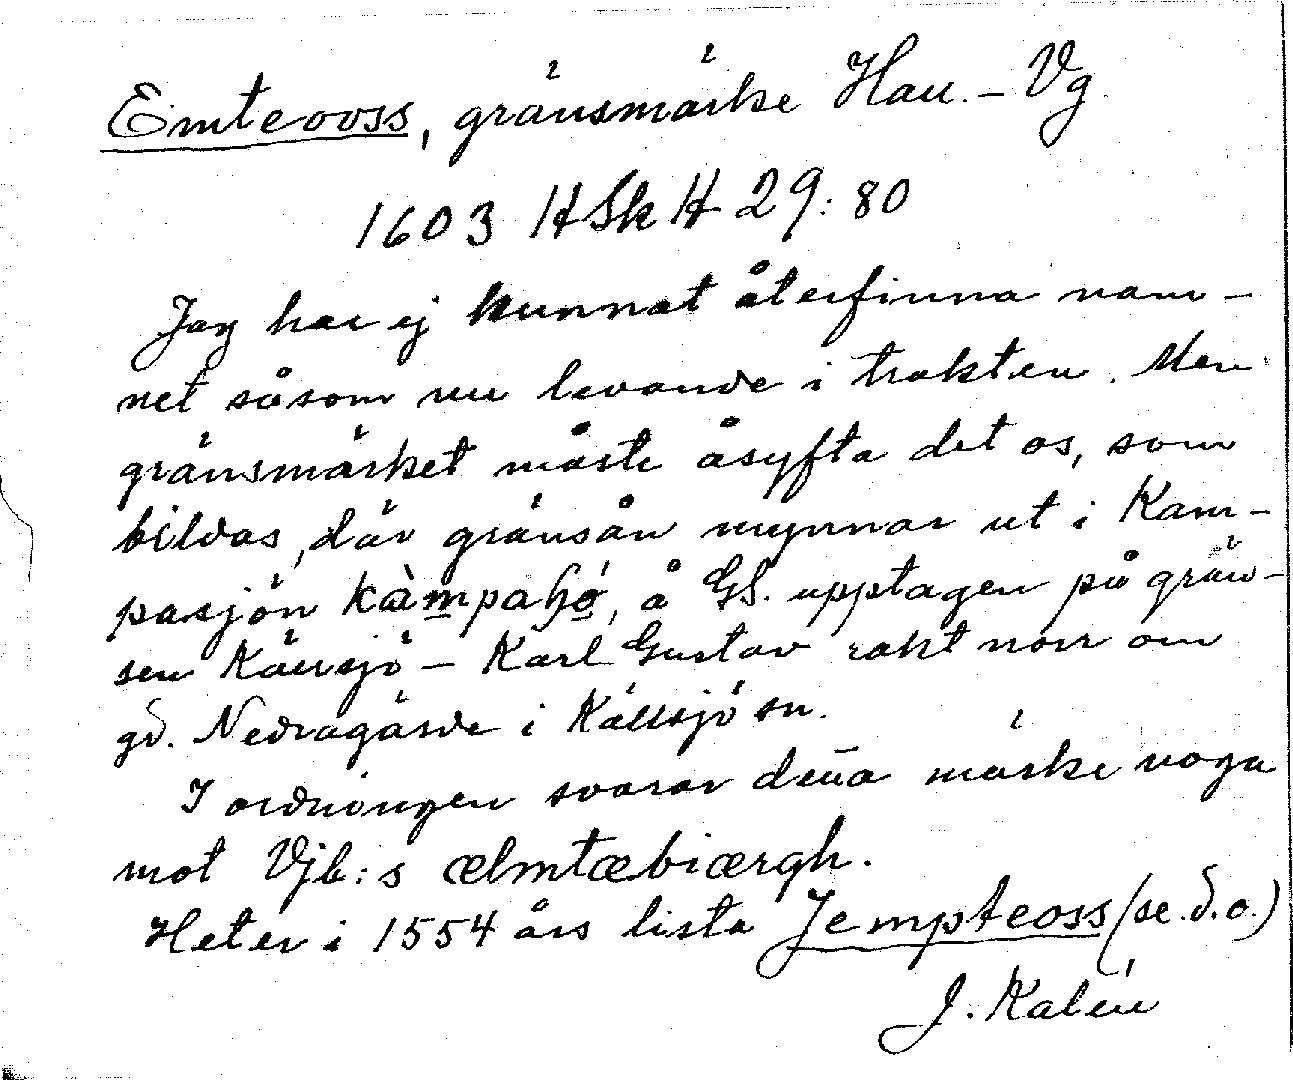 Emteooss, gränsmärke Hall.– Vg.
1603 HSk H 29:80
Jag har ej kunnat återfinna nam-
net såsom nu levande i trakten. Men
gränsmärket måste åsyfta det os, som
bildas, där gränsån mynnar ut i Kam-
pasjön kàmpaʃǿ, å GS. upptagen på grän-
sen Källsjö – Karl Gustav rakt norr om
gd. Nedragårde i Källsjö sn.
I ordningen svarar den̄a märke noga
mot Vjb:s ælmtæbiærgh.
Heter i 1554 års lista Jempteoss (se. d. o.)
J. Kalén